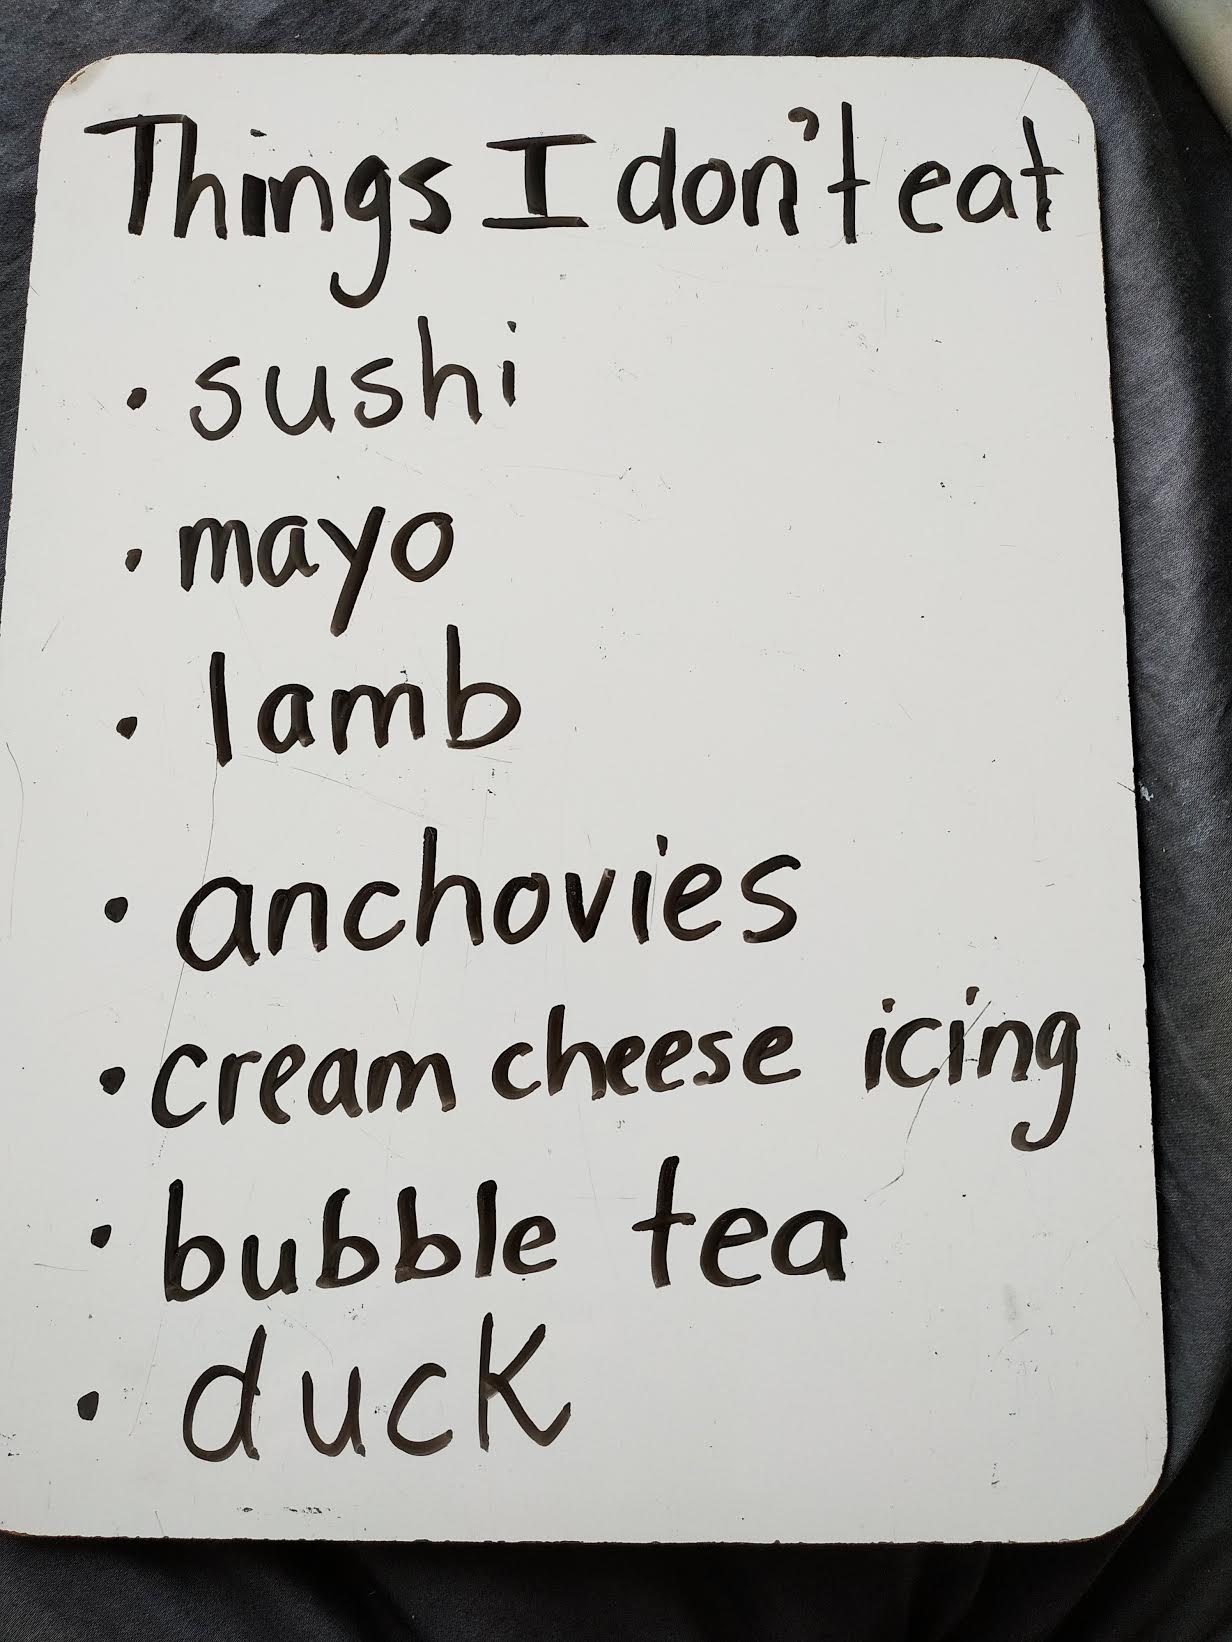 Things I don't eat
• sushi
• mayo
• lamb
• anchovies
• cream cheese icing
• bubble tea
• duck